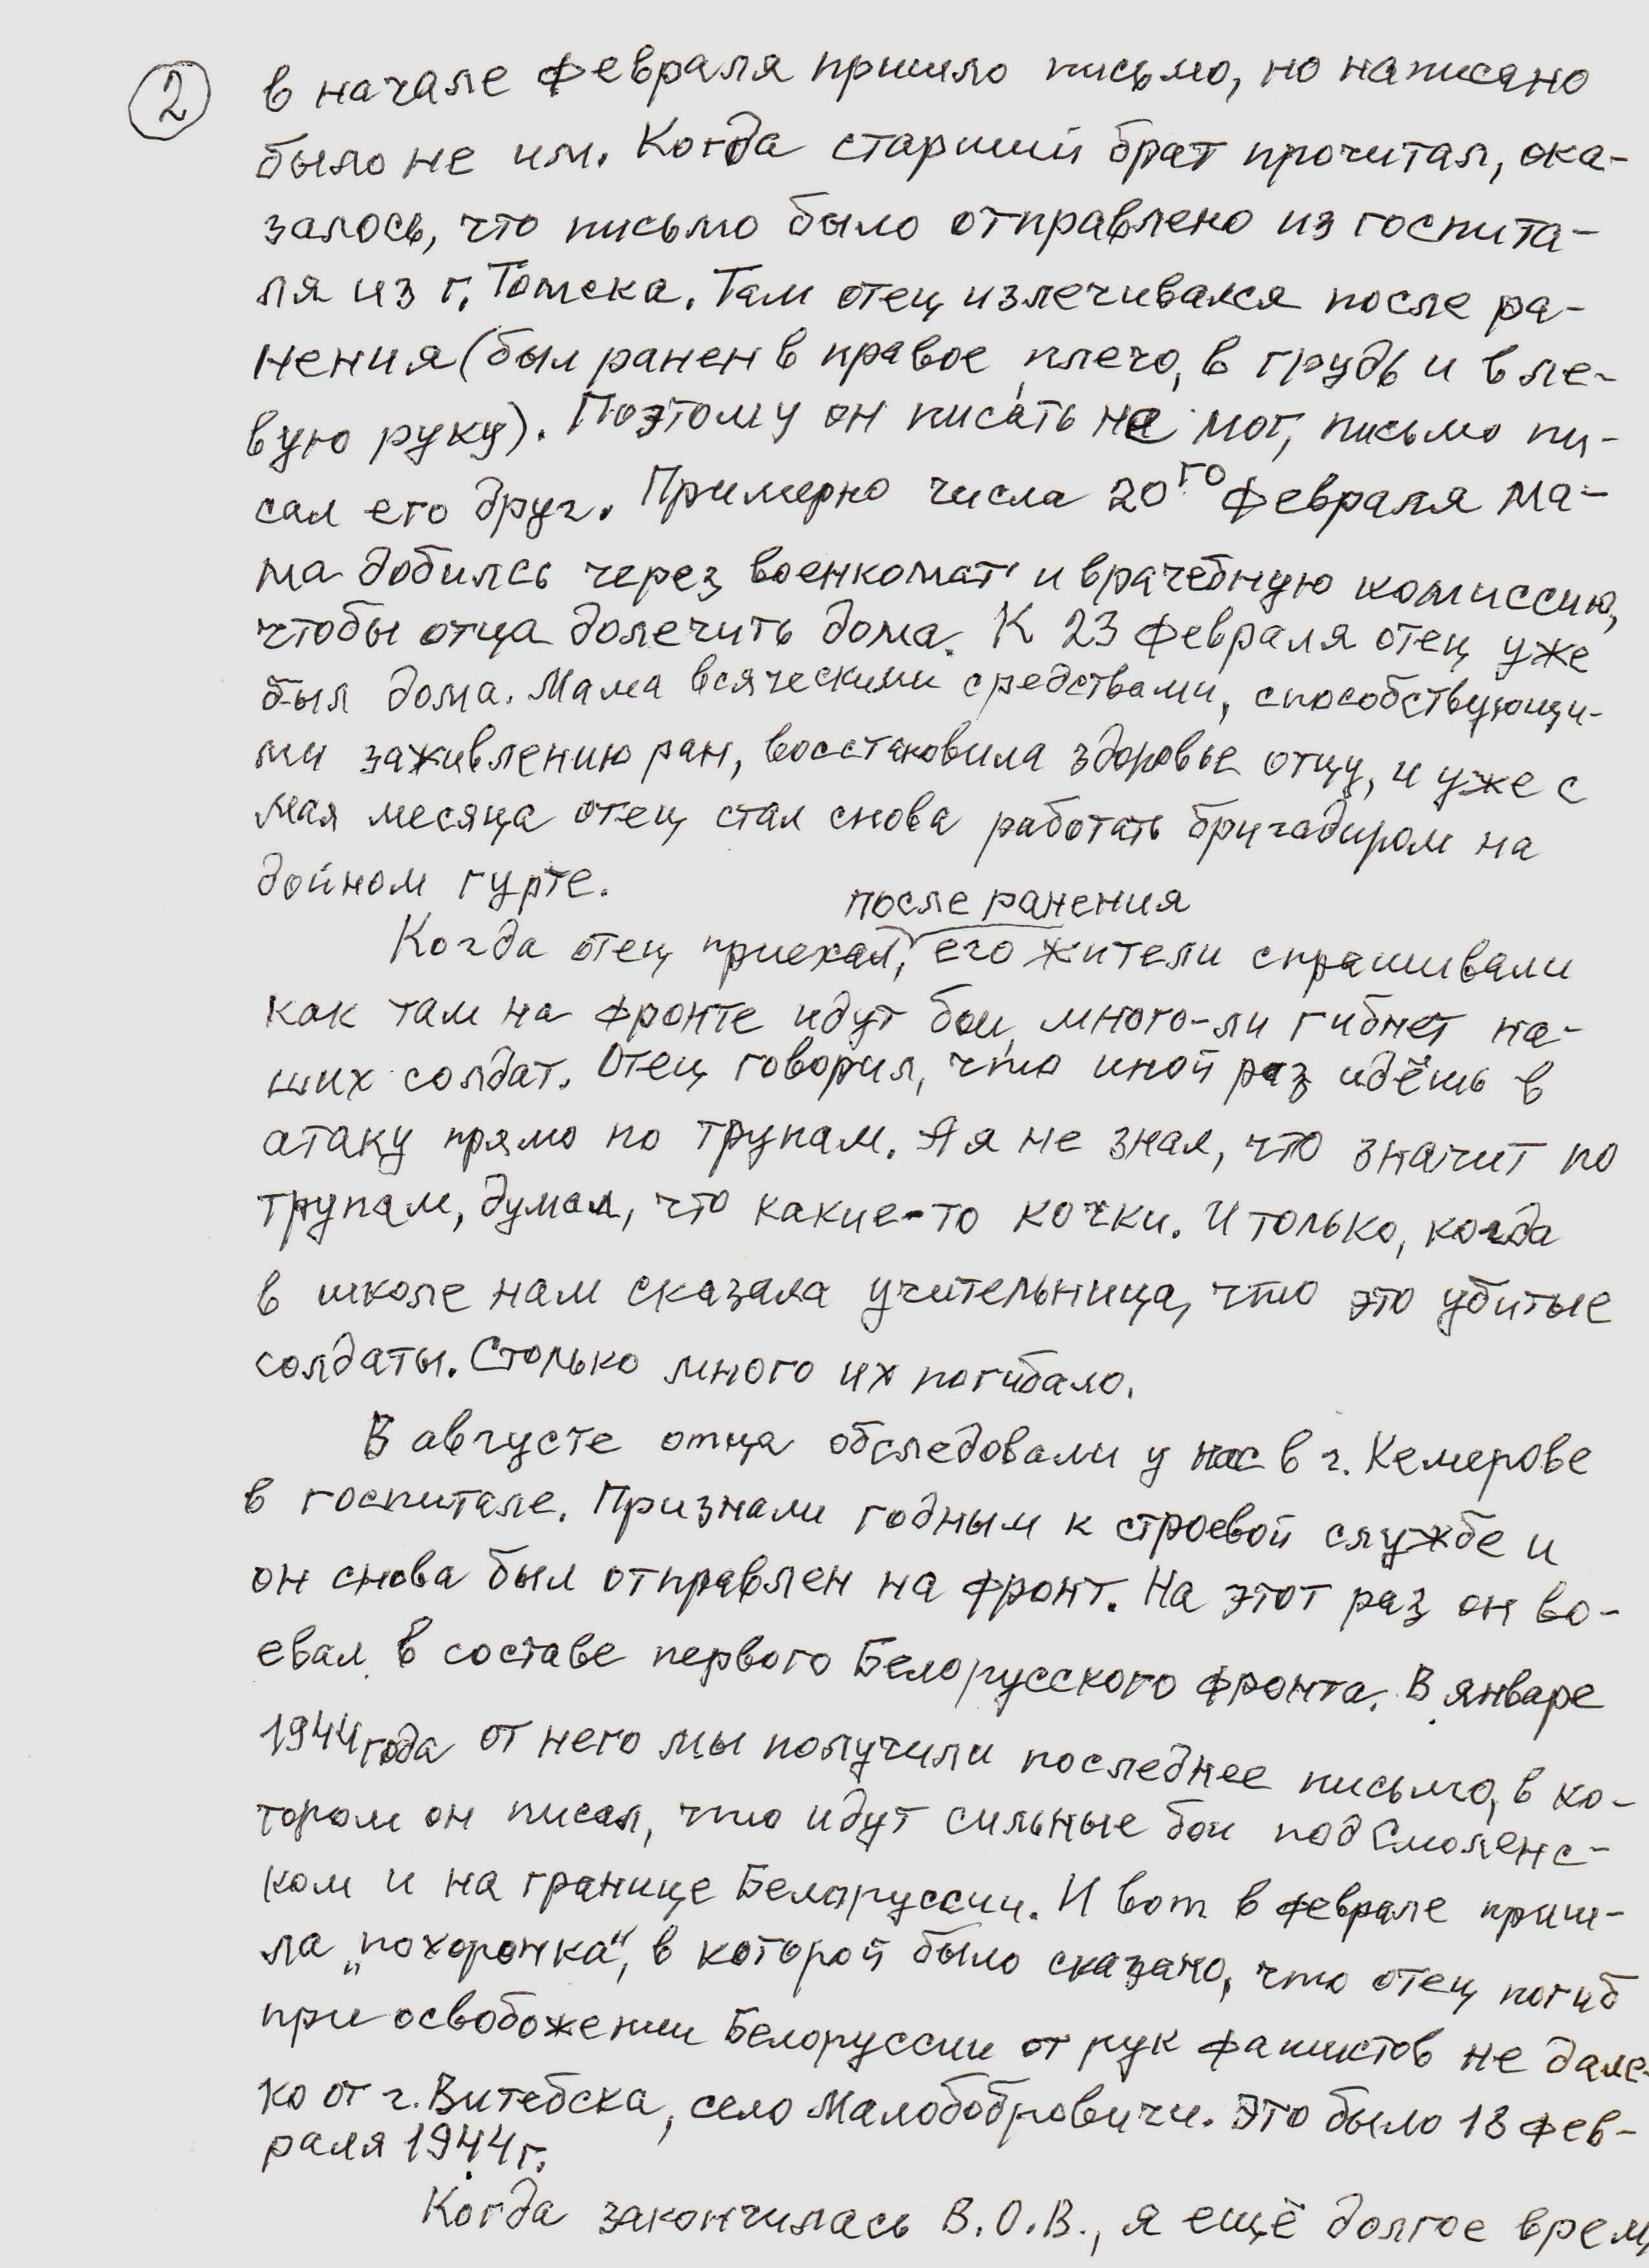 2
в начале февраля пришло письмо, но написано
было не им. Когда старший брат прочитал, ока-
залось, что письмо было отправлено из госпита-
ля из г. Томска. Там отец излечивался после ра-
нения (был ранен в правое плечо, в грудь и в ле-
вую руку). Поэтому он писать не мог, письмо пи-
сал его друг. Примерно числа 20го февраля ма-
ма добилсь через военкомат и врачебную комиссию,
чтобы отца долечить дома. К 23 февраля отец уже
был дома. Мама всяческими средствами, способствующи-
ми заживлению ран, восстановила здоровье отцу, и уже с
мая месяца отец стал снова работать бригадиром на
дойном гурте.
после ранения
Когда отец приехал, его жители спрашивали
как там на фронте идут бои, много-ли гибнет на-
ших солдат. Отец говорил, что иной раз идёшь в
атаку прямо по трупам. А я не знал, что значит по
трупам, думал, что какие-то кочки. И только, когда
в школе нам сказала учительница, что это убитые
солдаты. Столько много их погибало.
В августе отца обследовали у нас в г. Кемерове
в госпитале. Признали годным к строевой службе и
он снова был отправлен на фронт. На этот раз он во-
евал в составе первого Белорусского фронта. В январе
1944 года от него мы получили последнее письмо, в ко-
тором он писал, что идут сильные бои под Смоленс-
ком и на границе Белоруссии. И вот в феврале приш-
ла „похоронка“, в которой было сказано, что отец погиб
при освобожении Белоруссии от рук фашистов не дале-
ко от г. Витебска, село Малобобровичи. Это было 13 фев-
раля 1944 г.
Когда закончилась В.О.В., я ещё долгое врем